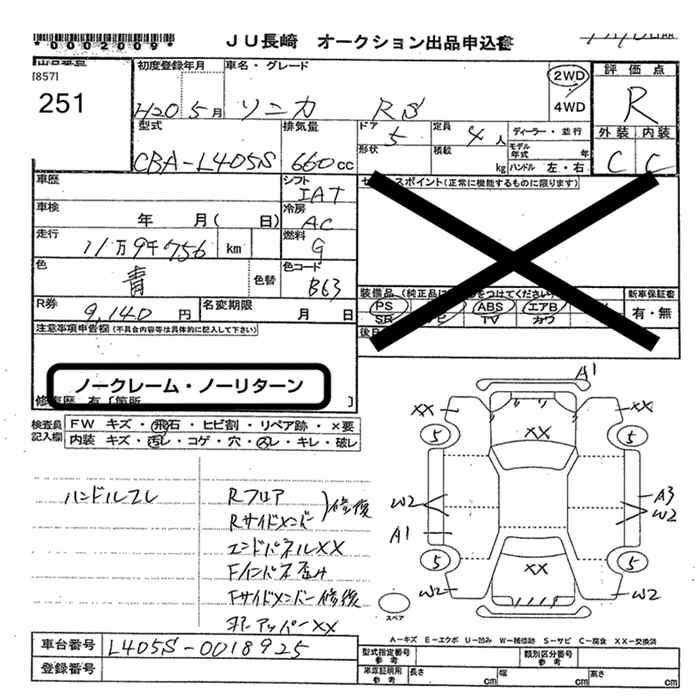 *0002009*
JU長崎 オークション出品申込書
[857]
251
初度登録年月
H20 5月
車名・グレード
ソニカ RS
2WD
4WD
評価点
R
外装 内装
C C
型式
CBA-L405S
排気量
660cc
ドア
5
形状
定員
4人
積載
kg
ディーラー・並行
モデル年式 年
ハンドル 左・右
車歴
シフト
IAT
車検
年 月( 日)
冷房
AC
走行
11万9千756 km
燃料
G
色
青
色替
色コード
B63
R券
9,140円
名変期限
月 日
スポイント(正常に機能するものに限ります)
装備品
PS
ABS
エアB
SR
TV
カワ
新車保証書
有・無
注意事項申告欄(不具合内容等は具体的に記入して下さい)
ノークレーム・ノーリターン
修復歴 有〔箇所 〕
検査員記入欄
FW キズ・飛石・ヒビ割・リペア跡・×要
内装 キズ・汚レ・コゲ・穴・スレ・キレ・破レ
ハンドルスレ
Rフロア
Rサイドメンバー
修復
エンドパネルXX
Fインパネ歪み
Fサイドメンバー修復
アッパーXX
A1
XX
XX
XX
5
5
W2
A3
W2
A1
5
5
XX
W2
W2
スペア
A=キズ E=エクボ U=凹み W=補修跡 S=サビ C=腐食 XX=交換済
車台番号
L405S-0018925
登録番号
型式指定番号
参考
類別区分番号
参考
車庫証明用
参考
長さ cm
幅 cm
高さ cm